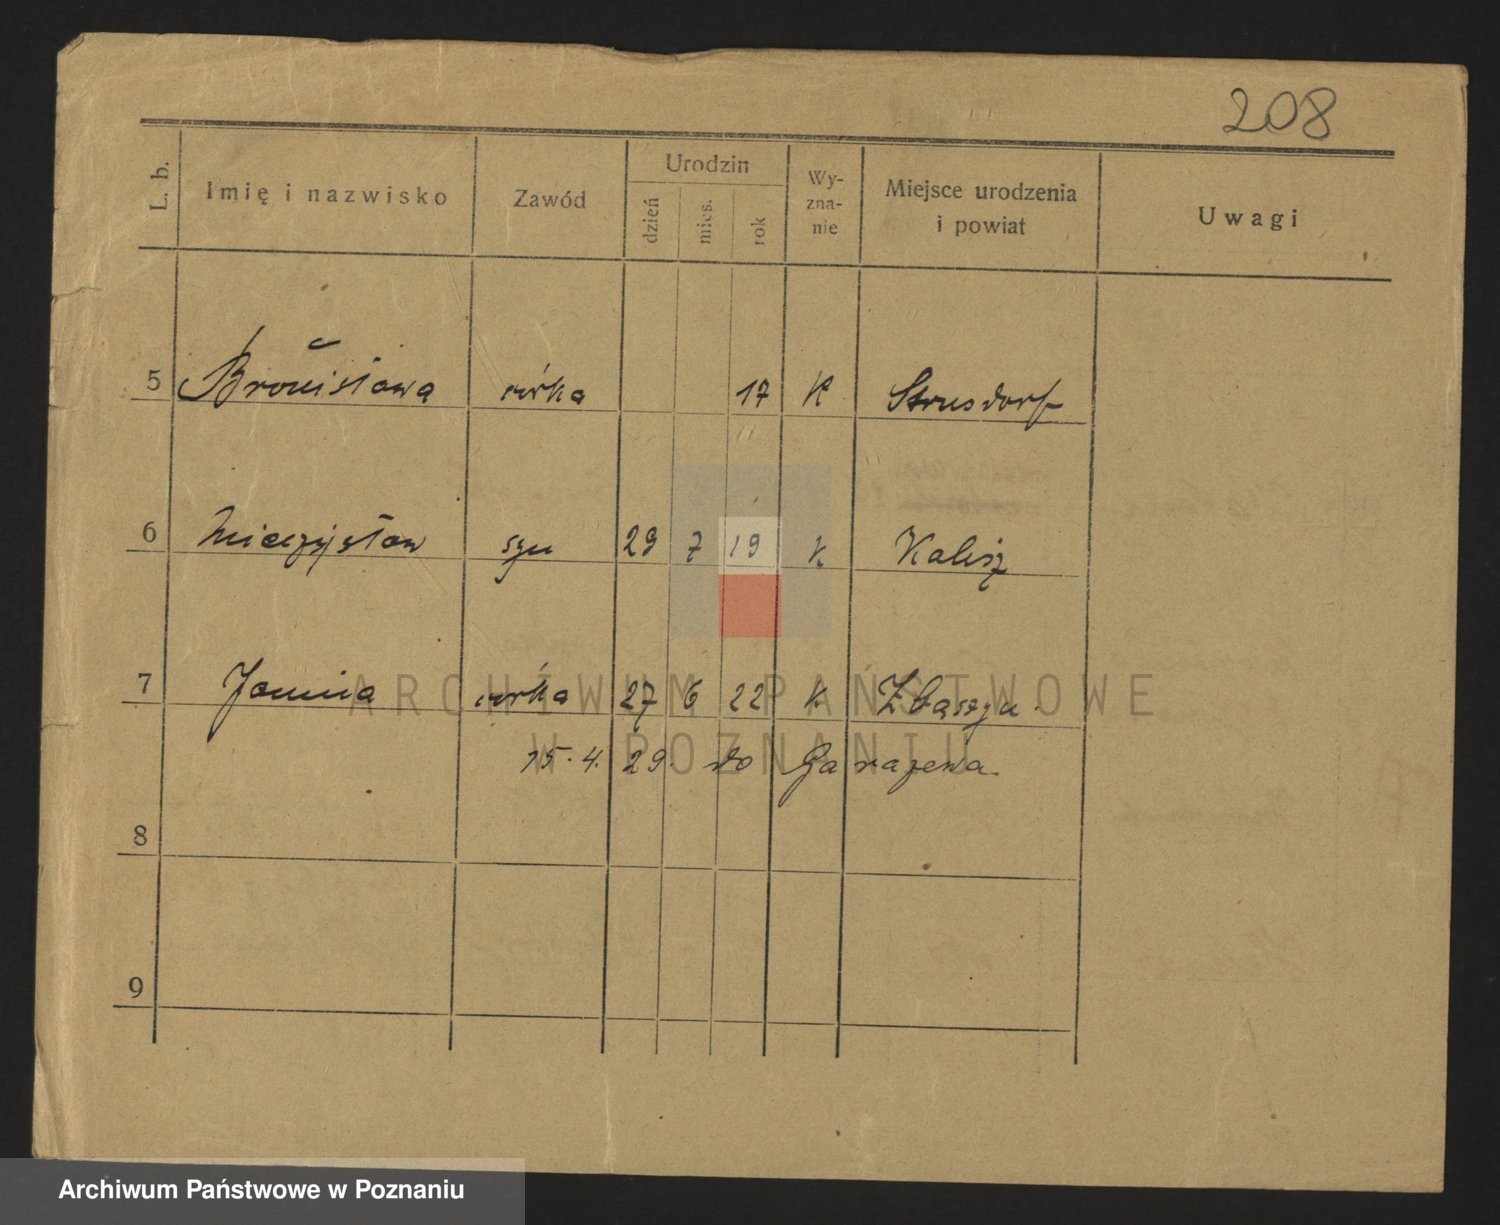 208
L. b. Imię i nazwisko Zawód Urodzin dzień mies. rok Wy-zna-nie Miejsce urodzenia i powiat Uwagi
5 Bronisława córka 17 K Strusdorf
6 Mieczysław syn 29 7 19 K Kalisz
7 Janina córka 27 6 22 K Zbąszyn
15.4. 29. do
8
9
ARCHIWUM PAŃSTWOWE
W POZNANIU
Archiwum Państwowe w Poznaniu